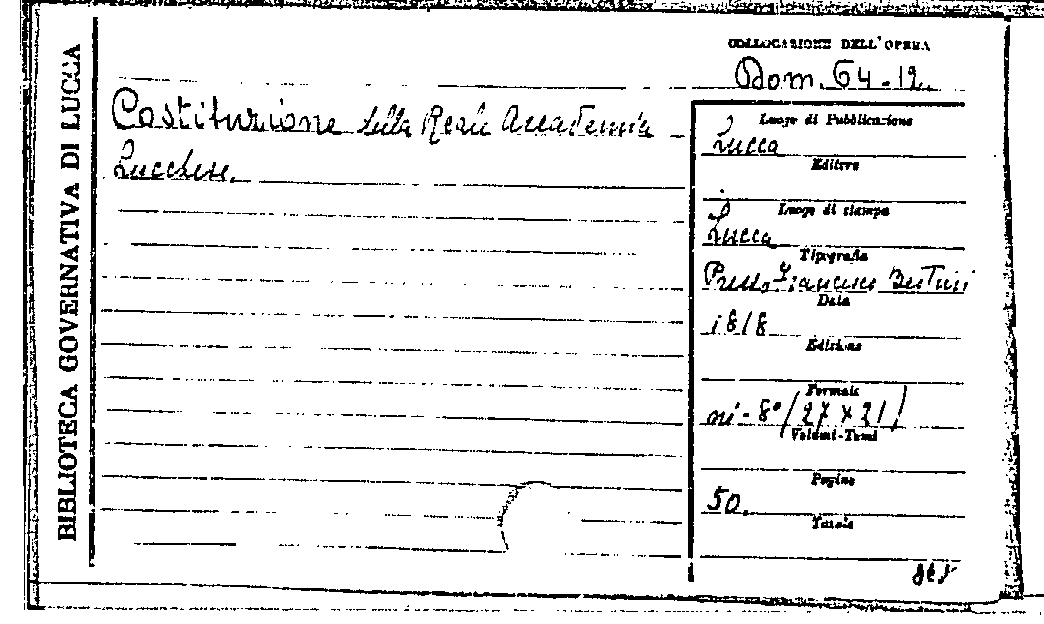 BIBLIOTECA GOVERNATIVA DI LUCCA
COLLOCAZIONE DELL'OPERA
Dom. 64-12.
Costituzione della Reale Accademia
Lucchese.
Luogo di Pubblicazione
Lucca
Editore
Luogo di stampa
Lucca
Tipografia
Presso Francesco Bertini
Data
1818
Edizione
Formato
in-8° (27 x 21)
Volumi-Tomi
Pagine
50.
Tavole